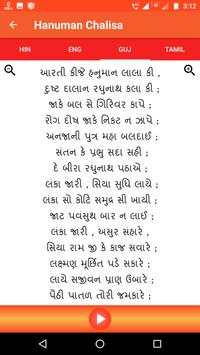 3:12
Hanuman Chalisa
HIN ENG GUJ TAMIL
આરતી કીજે હનુમાન લાલા કી ,
દુષ્ટ દાલાન રઘુનાથ કલા કી ;
જાકે બલ સે ગિરિવર કાપે ;
રોગ દોષ જાકે નિકટ ન ઝાપે ;
અનજાની પુત્ર મહા બલદાઈ ;
સંતન કે પ્રભુ સદા સહી ;
દે બીરા રઘુનાથ પઠાએ ;
લંકા જારી , સિયા સુધિ લાયે ;
લંકા સો કોટિ સમુદ્ર સી ખાયી ;
જાટ પવસુથ બાર ન લાઈ ;
લંકા જારી , અસુર સંહારે ,
સિયા રામ જી કે કાજ સવારે ;
લક્ષ્મણ મૂર્છિત પડે સકારે ;
લાયે સજીવન પ્રાણ ઉબારે ;
પૈઠી પાતળ તોરી જમકારે ;